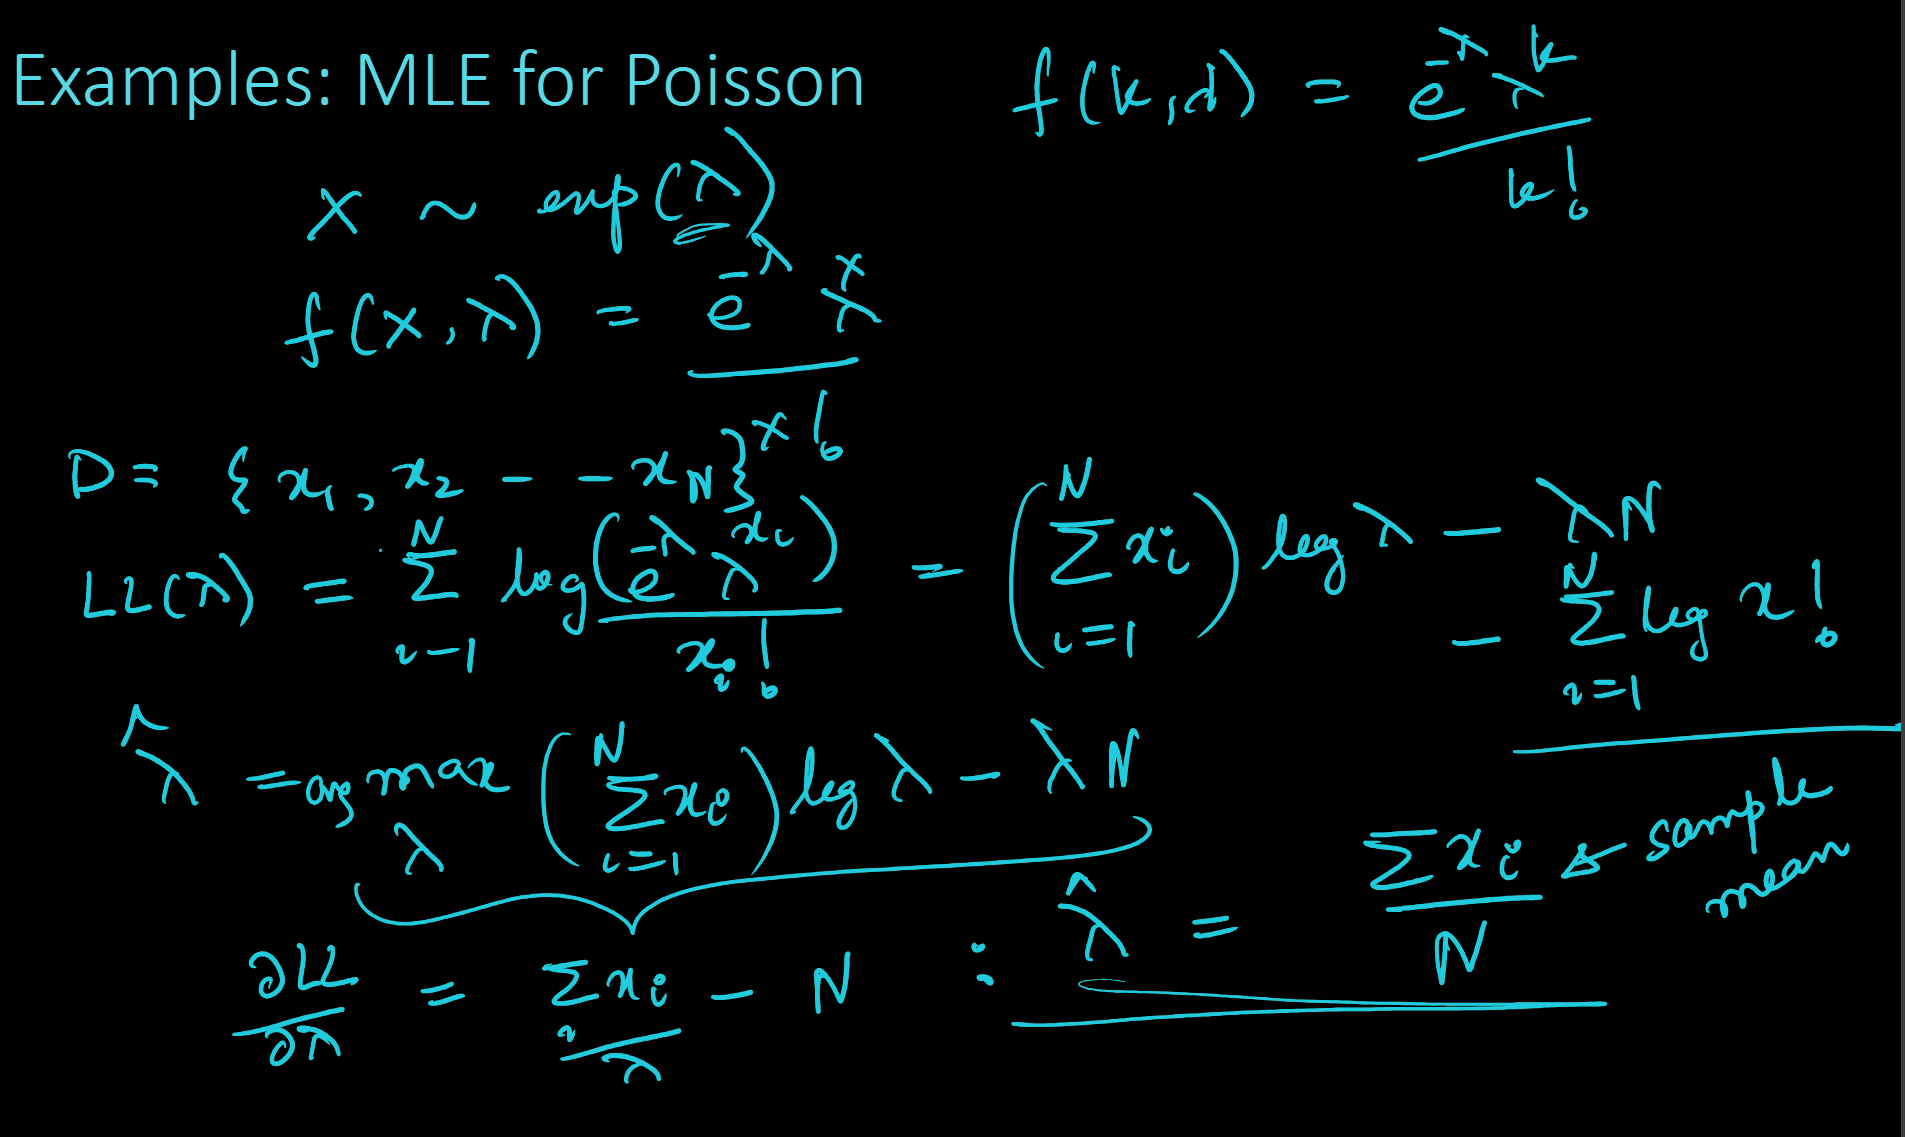 Examples: MLE for Poisson
f(k,λ) = e^-λ λ^k / k!
x ~ exp(λ)
f(x,λ) = e^-λ λ^x / x!
D = {x₁, x₂ - - x_N}
LL(λ) = Σ_{i=1}^N log(e^-λ λ^{x_i}) / x_i! = (Σ_{i=1}^N x_i) log λ - λN
- Σ_{i=1}^N log x!
λ̂ = arg max_λ (Σ_{i=1}^N x_i) log λ - λN
∂LL/∂λ = Σ_i x_i / λ - N : λ̂ = Σ x_i / N ← sample mean